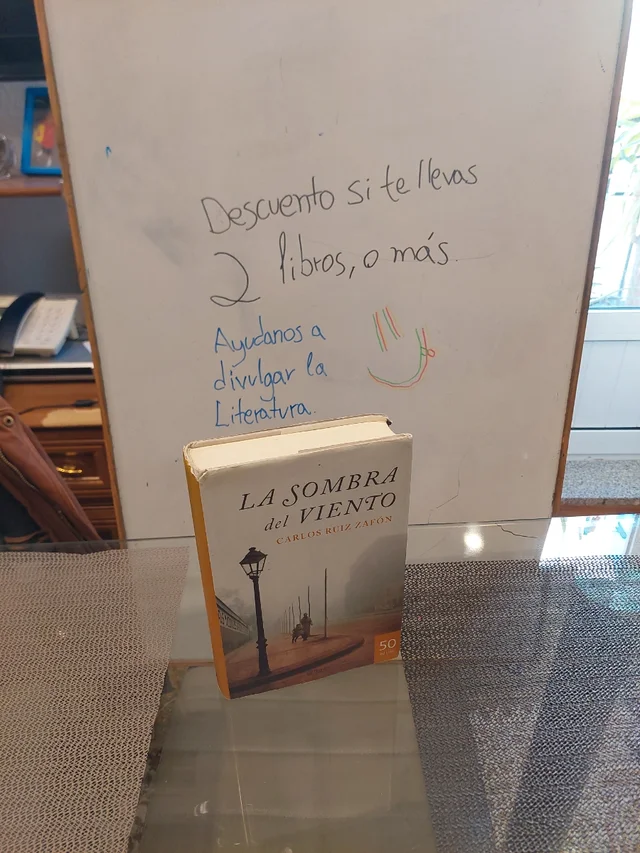 Descuento si te llevas
2 libros, o más.
Ayudanos a
divulgar la
Literatura.
LA SOMBRA
del VIENTO
CARLOS RUIZ ZAFÓN
50